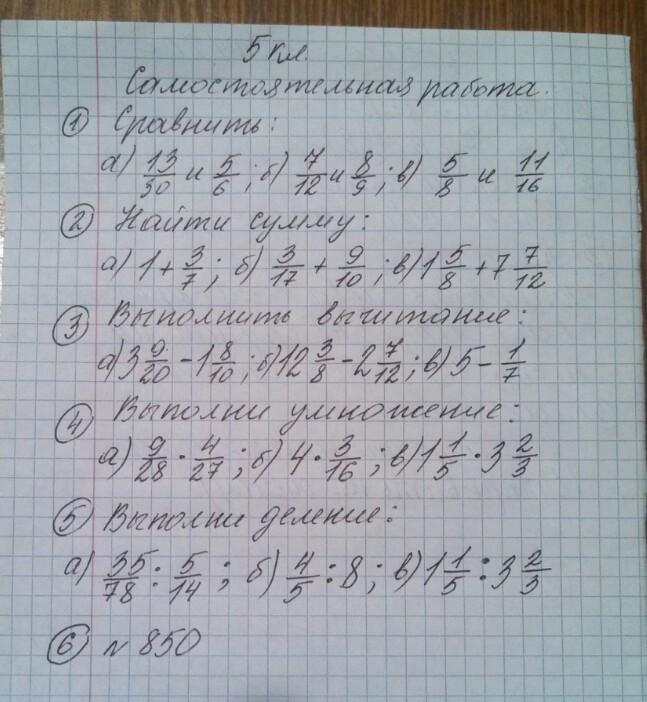 5 кл.
Самостоятельная работа.
① Сравнить:
а) 13/30 и 5/6; б) 7/12 и 8/9; в) 5/8 и 11/16
② Найти сумму:
а) 1 + 3/7; б) 3/17 + 9/10; в) 1 5/8 + 7 7/12
③ Выполнить вычитание:
а) 3 9/20 - 1 8/10; б) 12 3/8 - 2 7/12; в) 5 - 1/7
④ Выполни умножение:
а) 9/28 · 4/27; б) 4 · 3/16; в) 1 1/5 · 3 2/3
⑤ Выполни деление:
а) 35/78 : 5/14; б) 4/5 : 8; в) 1 1/5 : 3 2/3
⑥ № 850